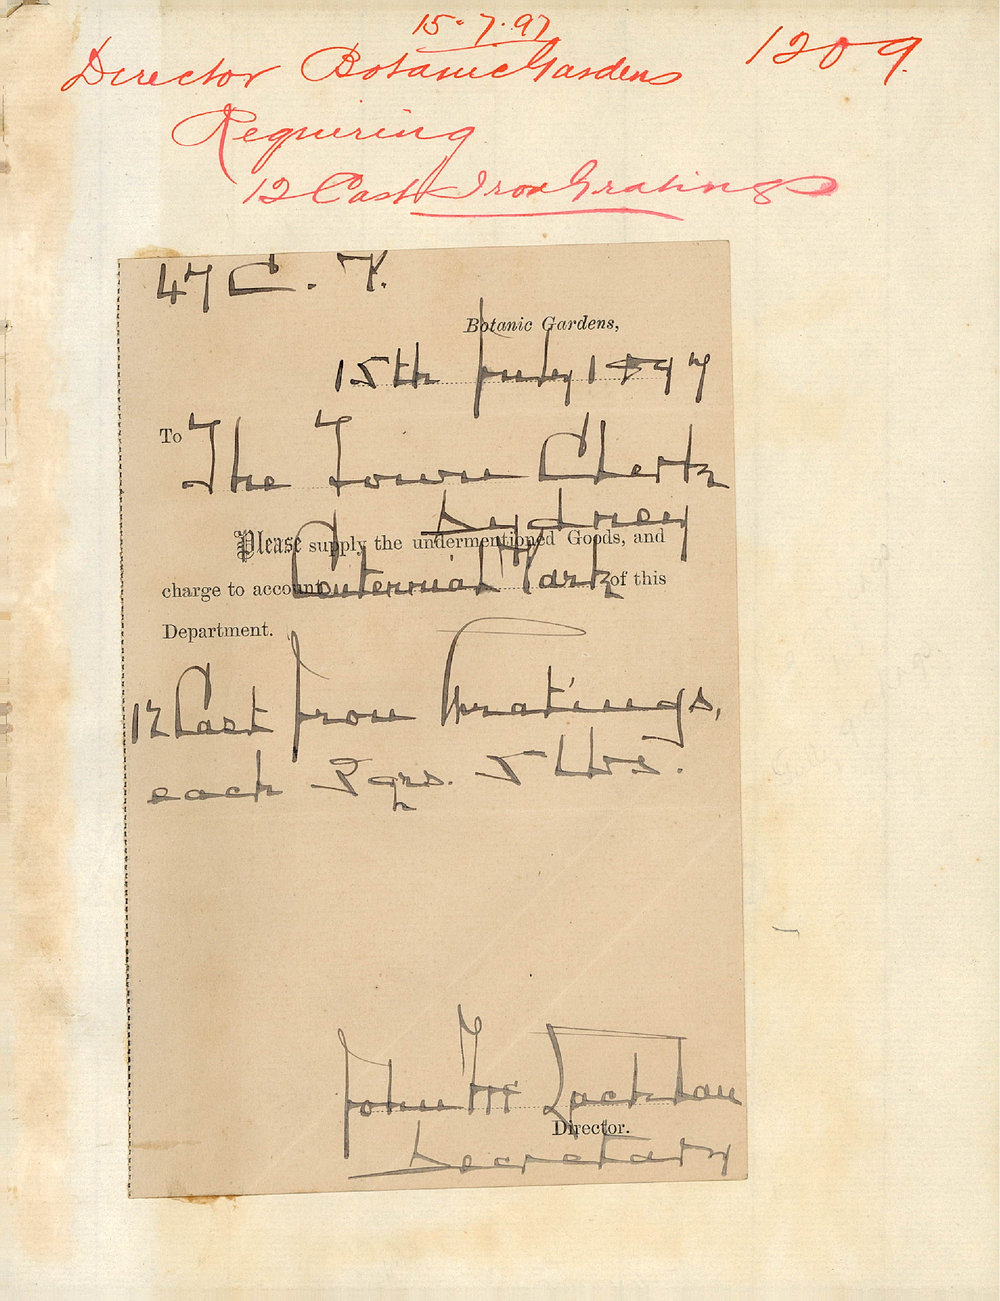 15.7.97
Director Botanic Gardens 1209.
Requiring
12 Cast Iron Gratings
47 C. T.
Botanic Gardens,
15th July 1897
To The Town Clerk
Sydney
Please supply the undermentioned Goods, and
charge to account Centennial Park of this
Department.
12 Cast Iron Gratings,
each 3 qrs. 5 lbs.
John Mc Lachlan
Director.
Secretary